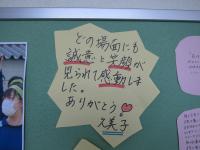 どの場面にも
誠意と笑顔が
見られて感動しま
した。
ありがとう
久美子